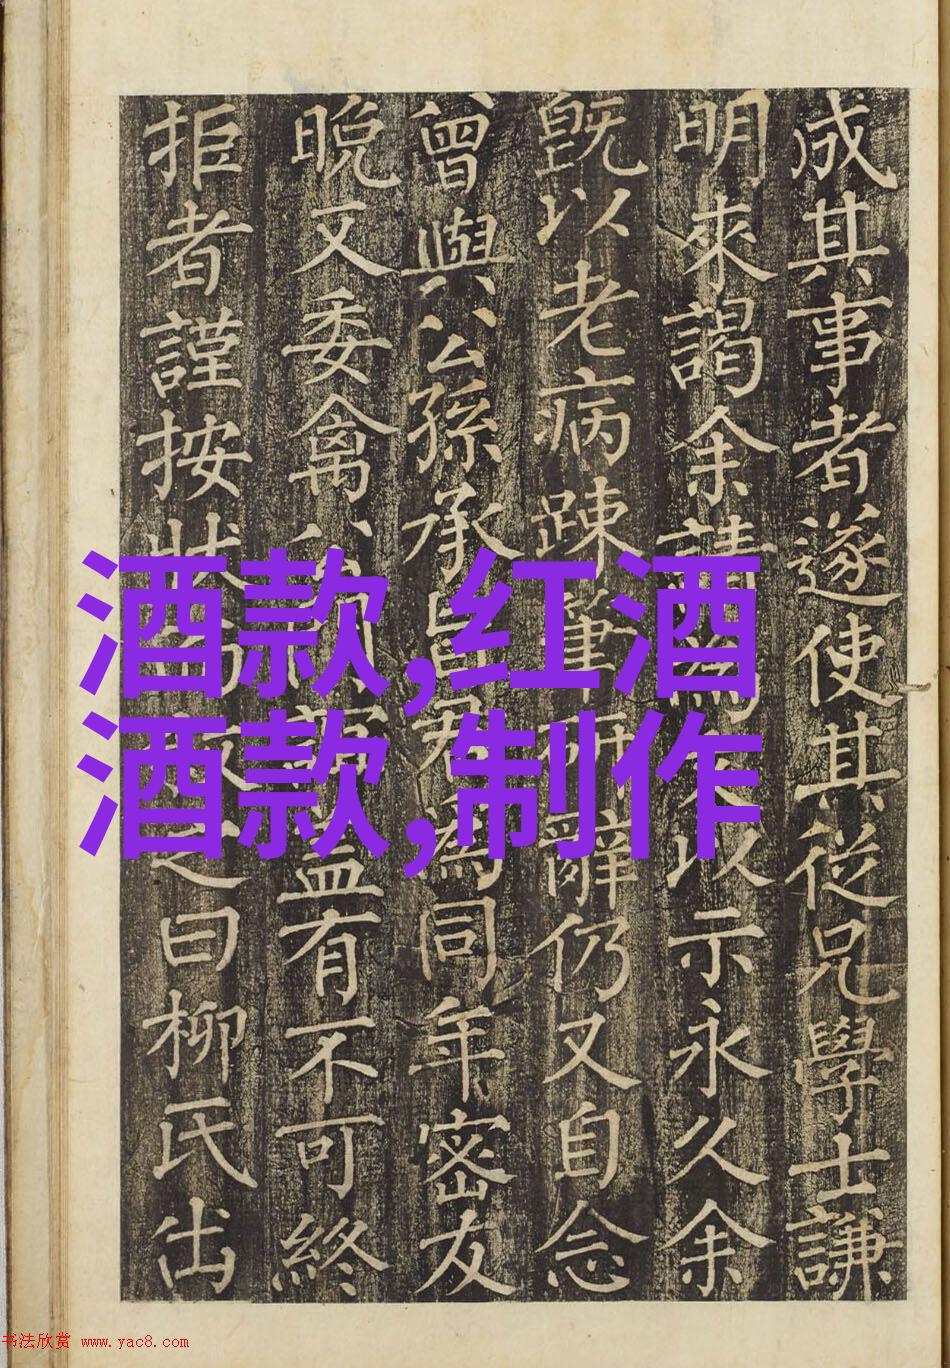 成其事者遂使其從兄學士謙
明來謁余請為以示永久余
既以老病踈筆研辭仍又自念
曾與公孫承旨君為同年密友
晚又委禽公有不可終
拒者謹按狀之曰柳氏出
酒款,红酒
酒款,制作
书法欣赏 www.yac8.com